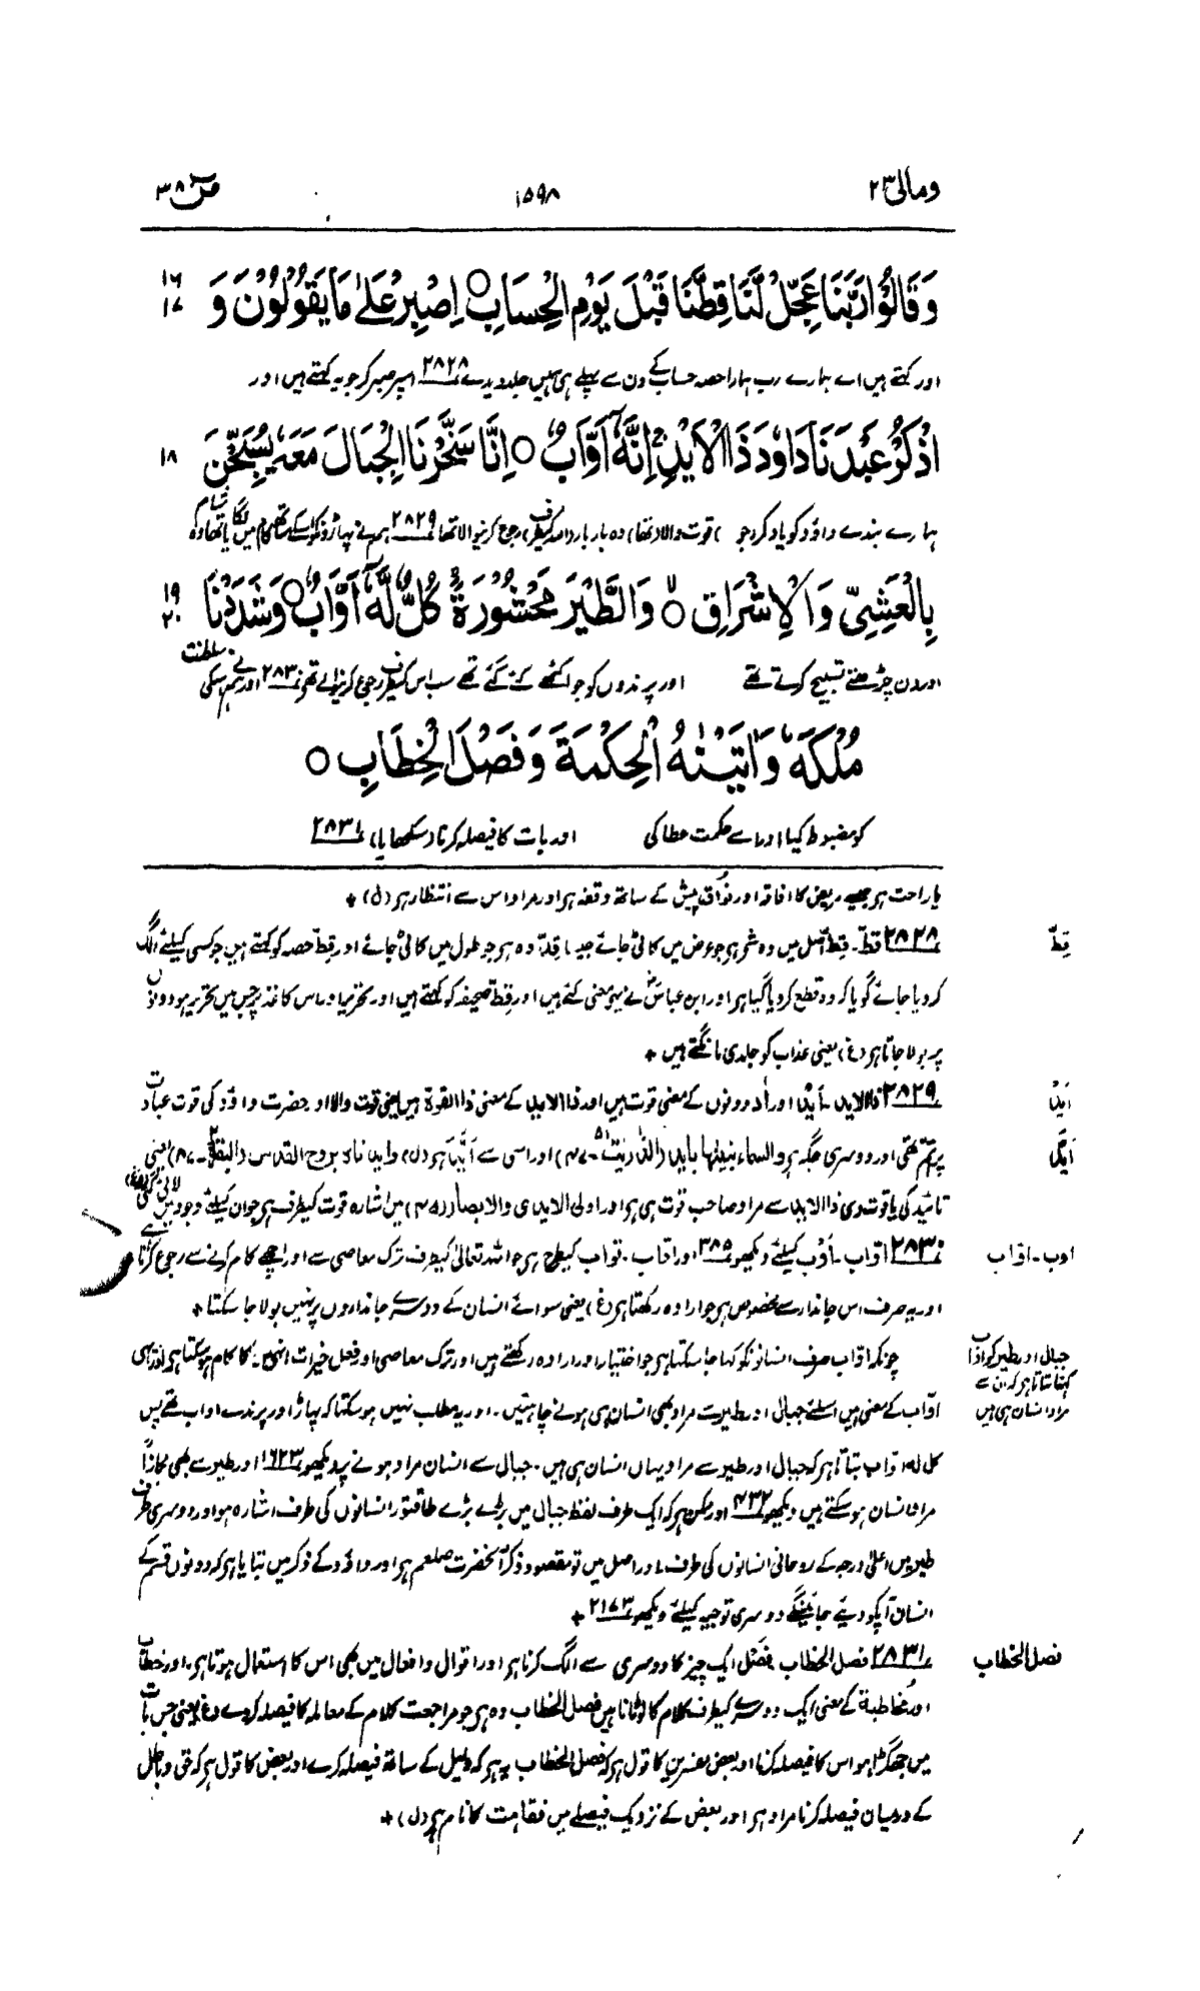 ومالی ۲۳ ۱۵۹۸ صٓ ۳۸
وَقَالُوْا رَبَّنَا عَجِّلْ لَّنَا قِطَّنَا قَبْلَ يَوْمِ الْحِسَابِ ○ اِصْبِرْ عَلٰى مَا يَقُوْلُوْنَ وَ ۱۶ ۱۷
اور کہتے ہیں اے ہمارے رب ہمارا حصہ حساب کے دن سے پہلے ہی ہمیں جلد دیدے ۲۸۲۸ اسپر صبر کر جو یہ کہتے ہیں اور
اذْكُرْ عَبْدَنَا دَاوٗدَ ذَا الْاَيْدِ ۚ اِنَّهٗٓ اَوَّابٌ ○ اِنَّا سَخَّرْنَا الْجِبَالَ مَعَهٗ يُسَبِّحْنَ ۱۸
ہمارے بندے داؤد کو یاد کر جو (قوت والا تھا) وہ بار بار (اللہ کیطرف) رجوع کرنیوالا تھا ۲۸۲۹ ہم نے پہاڑوں کو اسکے ساتھ کام میں لگایا تھا وہ شام
بِالْعَشِيِّ وَالْاِشْرَاقِ ○ وَالطَّيْرَ مَحْشُوْرَةً ؕ كُلٌّ لَّهٗٓ اَوَّابٌ ○ وَشَدَدْنَا ۱۹ ۲۰
اور دن چڑھتے تسبیح کرتے تھے اور پرندوں کو جو اکٹھے کئے گئے تھے سب اس کیطرف رجوع کرنیوالے تھے ۲۸۳۰ اور ہم نے اسکی سلطنت
مُلْكَهٗ وَاٰتَيْنٰهُ الْحِكْمَةَ وَفَصْلَ الْخِطَابِ ○
کو مضبوط کیا اور اسے حکمت عطا کی اور بات کا فیصلہ کرنا (سکھایا) ۲۸۳۱
یا راحت ہو جیسے مریض کا افاقہ اور فُواق پیش کے ساتھ وقفہ ہو اور مراد اس سے انتظار ہو (ل) +
قِطّ
۲۸۲۸ قطّ۔ قِطّ اصل میں وہ شے ہو جو عرض میں کاٹی جائے جیسا قِدّ وہ ہو جو طول میں کاٹی جائے اور قِطّ حصہ کو کہتے ہیں جو کسی کیلئے الگ
کر دیا جائے گویا کہ وہ قطع کر دیا گیا ہو اور ابن عباسؓ نے یہی معنی کئے ہیں اور قِطّ صحیفہ کو کہتے ہیں اور تحریر اور اس کاغذ پر جس میں تحریر ہو دونوں
پر بولا جاتا ہو (غ) یعنی عذاب کو جلدی مانگتے ہیں +
اَیْد
۲۸۲۹ ذا الاید۔ اَیْد اور اٰد دونوں کے معنی قوت ہیں اور ذا الاید کے معنی ذا القوة ہیں یعنی قوت والا اور حضرت داؤد کی قوت عبادت
اَیَّدَ
پر تھی اور دوسری جگہ ہو والسماء بنینٰها باید (الذّٰریٰت ۵۱۔۴۷) اور اسی سے اَیَّدَ ہو (ل) وایدناہ بروح القدس (البقرة ۲۔۸۷) یعنی
تائید کی یا قوت دی ذا الاید سے مراد صاحب قوت ہی ہو اور اولی الایدی والابصار (۴۵) میں اشارہ قوت کیطرف ہو جو ان کیلئے وجود میں لائی گئی (غ)
اوب۔ اوّاب
۲۸۳۰ اوّاب۔ اَوْب کیلئے دیکھو ۳۸۵ اور اوّاب۔ توّاب کیطرح ہو جو اللہ تعالیٰ کیطرف ترک معاصی سے اور اچھے کام کرنے سے رجوع کرتا ہے
اور یہ صرف اس جاندار سے مخصوص ہو جو ارادہ رکھتا ہو (غ) یعنی سوائے انسان کے دوسرے جانداروں پر نہیں بولا جا سکتا +
جبال اور طیر کو اوّاب کہنا بتاتا ہو کہ ان سے مراد انسان ہی ہیں
چونکہ اوّاب صرف انسانوں کو کہا جا سکتا ہو جو اختیار اور ارادہ رکھتے ہیں اور ترک معاصی اور فعل خیرات انہی کا کام ہو سکتا ہو اور یہی
اوّاب کے معنی ہیں اسلئے جبال اور طیر سے مراد بھی انسان ہی ہونے چاہئیں۔ اور یہ مطلب نہیں ہو سکتا کہ پہاڑ اور پرندے اوّاب تھے پس
کل لہ اوّاب بتاتا ہو کہ جبال اور طیر سے مراد یہاں انسان ہی ہیں۔ جبال سے انسان مراد ہونے پر دیکھو ۱۶۲۳ اور طیر سے بھی مجازاً
مراد انسان ہو سکتے ہیں دیکھو ۴۳۲ اور ممکن ہو کہ ایک طرف لفظ جبال میں بڑے بڑے طاقتور انسانوں کی طرف اشارہ ہو اور دوسری طرف
طیر میں اعلیٰ درجہ کے روحانی انسانوں کی طرف۔ اور اصل میں تو مقصود ذکر آنحضرت صلعم ہو اور داؤد کے ذکر میں بتایا ہو کہ دونوں قسم کے
انسان آپکو دیئے جائینگے دوسری توجیہ کیلئے دیکھو ۲۱۷۳ +
فصل الخطاب
۲۸۳۱ فصل الخطاب۔ فَصْل ایک چیز کا دوسری سے الگ کرنا ہو اور اقوال و افعال میں بھی اس کا استعمال ہوتا ہو۔ اور خطاب
اور مُخاطبة کے معنی ایک دوسرے کیطرف کلام کا لوٹانا ہیں فصل الخطاب وہ ہو جو مراجعت کلام کے معاملہ کا فیصلہ کر دے (غ) یعنی جس بات
میں جھگڑا ہو اس کا فیصلہ کرنا اور بعض مفسرین کا قول ہو کہ فصل الخطاب یہ ہو کہ دلیل کے ساتھ فیصلہ کرے اور بعض کا قول ہو کہ حق و باطل
کے درمیان فیصلہ کرنا مراد ہو اور بعض کے نزدیک فیصلے میں فقاہت کا نام ہو (ل) +